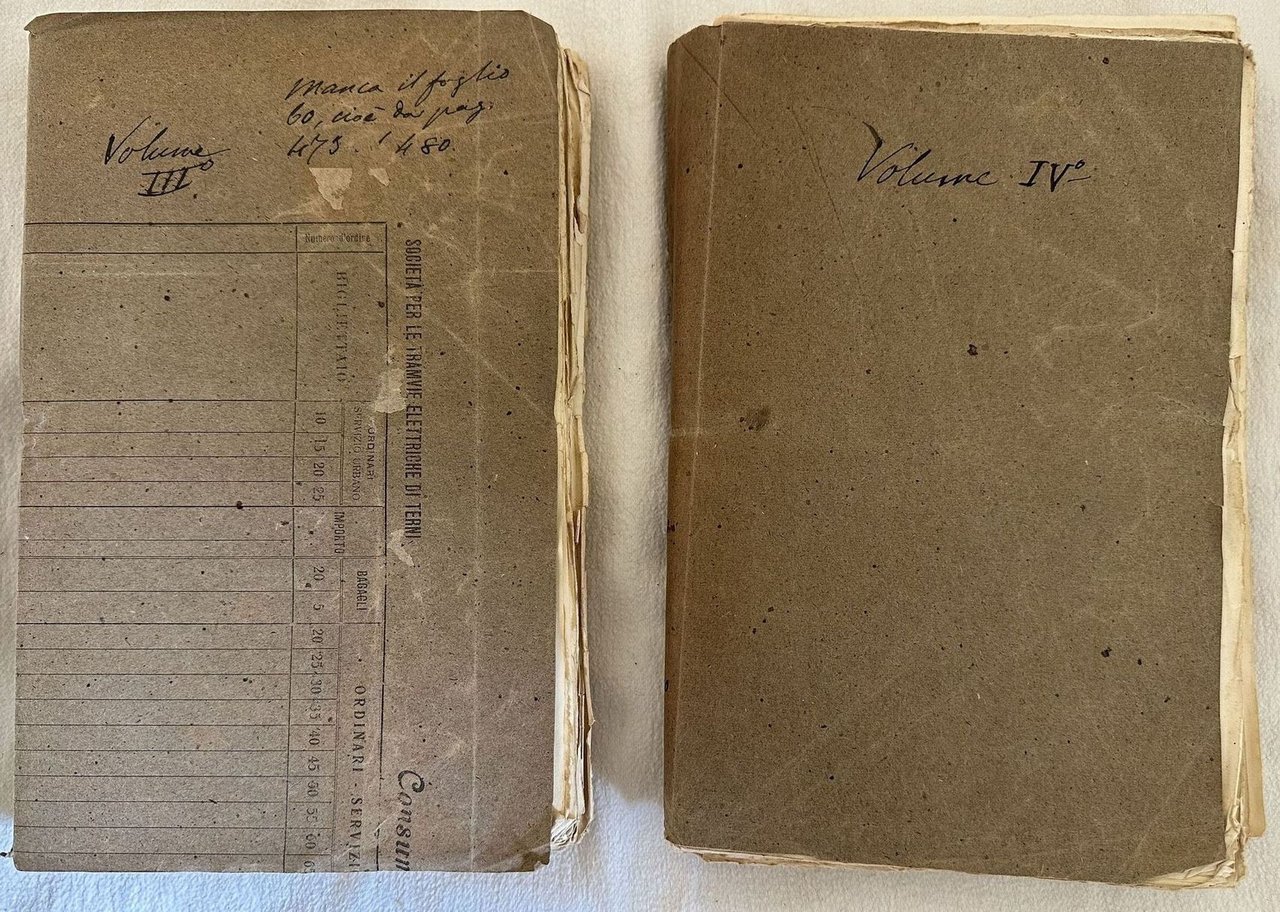 Manca il foglio
60, cioè da pag.
473 . / 480.
Volume
IIIº
Numero d'ordine
BIGLIETTAIO
ORDINARI
SERVIZIO URBANO
10 15 20 25
IMPORTO
BAGAGLI
20 5
ORDINARI - SERVIZI
20 25 30 35 40 45 50 55 60 6
SOCIETÀ PER LE TRAMVIE ELETTRICHE DI TERNI
Consum
Volume IVº